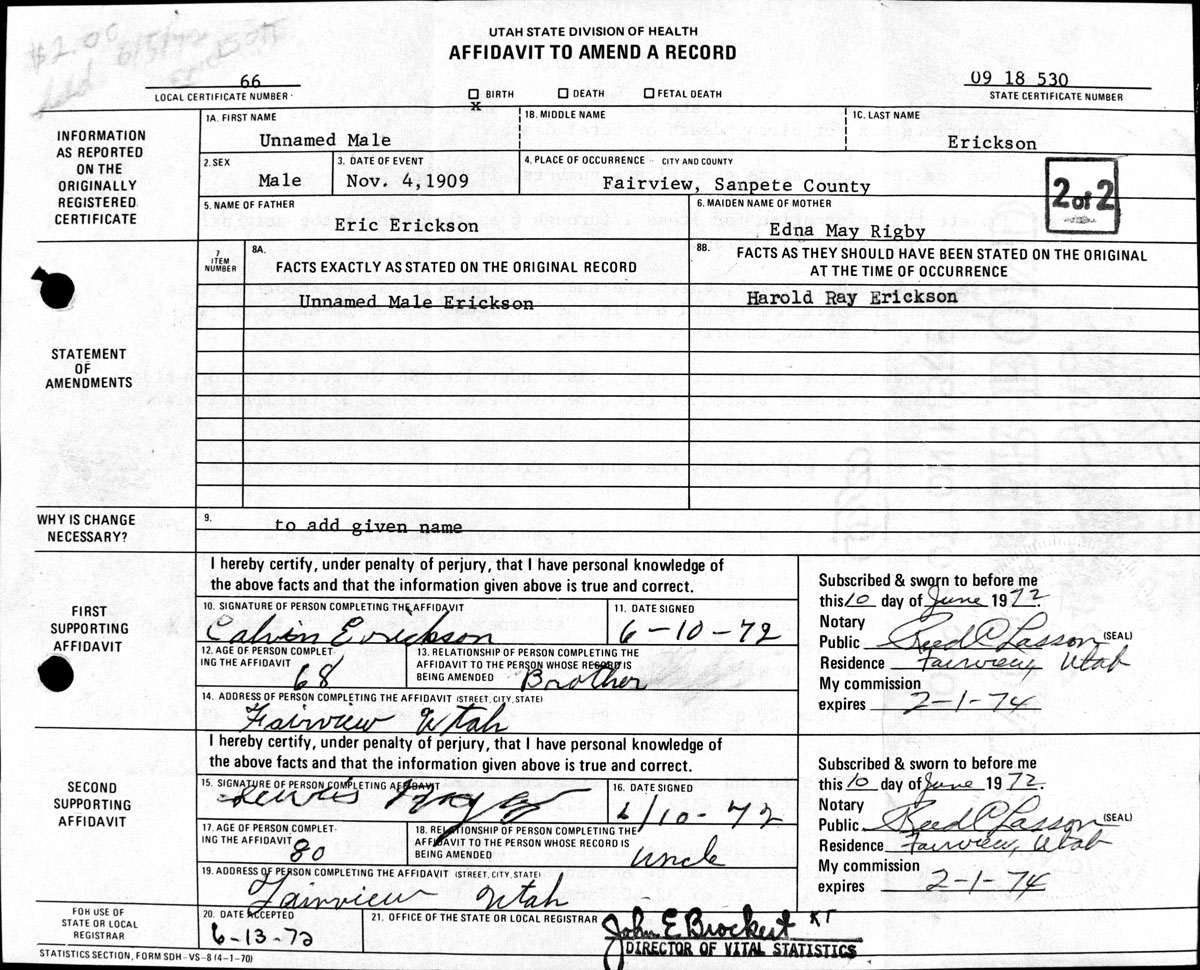 UTAH STATE DIVISION OF HEALTH
AFFIDAVIT TO AMEND A RECORD
$2.00
66
LOCAL CERTIFICATE NUMBER
X
BIRTH DEATH FETAL DEATH
09 18 530
STATE CERTIFICATE NUMBER
INFORMATION
AS REPORTED
ON THE
ORIGINALLY
REGISTERED
CERTIFICATE
1A. FIRST NAME
Unnamed Male
1B. MIDDLE NAME
1C. LAST NAME
Erickson
2. SEX
Male
3. DATE OF EVENT
Nov. 4, 1909
4. PLACE OF OCCURRENCE -- CITY AND COUNTY
Fairview, Sanpete County
2 of 2
5. NAME OF FATHER
Eric Erickson
6. MAIDEN NAME OF MOTHER
Edna May Rigby
STATEMENT
OF
AMENDMENTS
7
ITEM
NUMBER
8A.
FACTS EXACTLY AS STATED ON THE ORIGINAL RECORD
8B.
FACTS AS THEY SHOULD HAVE BEEN STATED ON THE ORIGINAL
AT THE TIME OF OCCURRENCE
Unnamed Male Erickson
Harold Ray Erickson
WHY IS CHANGE
NECESSARY?
9.
to add given name
FIRST
SUPPORTING
AFFIDAVIT
I hereby certify, under penalty of perjury, that I have personal knowledge of
the above facts and that the information given above is true and correct.
10. SIGNATURE OF PERSON COMPLETING THE AFFIDAVIT
Calvin Erickson
11. DATE SIGNED
6-10-72
12. AGE OF PERSON COMPLET-
ING THE AFFIDAVIT
68
13. RELATIONSHIP OF PERSON COMPLETING THE
AFFIDAVIT TO THE PERSON WHOSE RECORD IS
BEING AMENDED
Brother
14. ADDRESS OF PERSON COMPLETING THE AFFIDAVIT (STREET, CITY, STATE)
Fairview Utah
Subscribed & sworn to before me
this 10 day of June 1972.
Notary
Public Reed A Lasson (SEAL)
Residence Fairview, Utah
My commission
expires 2-1-74
SECOND
SUPPORTING
AFFIDAVIT
I hereby certify, under penalty of perjury, that I have personal knowledge of
the above facts and that the information given above is true and correct.
15. SIGNATURE OF PERSON COMPLETING AFFIDAVIT
16. DATE SIGNED
6/10-72
17. AGE OF PERSON COMPLET-
ING THE AFFIDAVIT
80
18. RELATIONSHIP OF PERSON COMPLETING THE
AFFIDAVIT TO THE PERSON WHOSE RECORD IS
BEING AMENDED
Uncle
19. ADDRESS OF PERSON COMPLETING THE AFFIDAVIT (STREET, CITY, STATE)
Fairview Utah
Subscribed & sworn to before me
this 10 day of June 1972.
Notary
Public Reed A Lasson (SEAL)
Residence Fairview, Utah
My commission
expires 2-1-74
FOR USE OF
STATE OR LOCAL
REGISTRAR
20. DATE ACCEPTED
6-13-72
21. OFFICE OF THE STATE OR LOCAL REGISTRAR
John E Brockert KT
DIRECTOR OF VITAL STATISTICS
STATISTICS SECTION, FORM SDH-VS-8 (4-1-70)